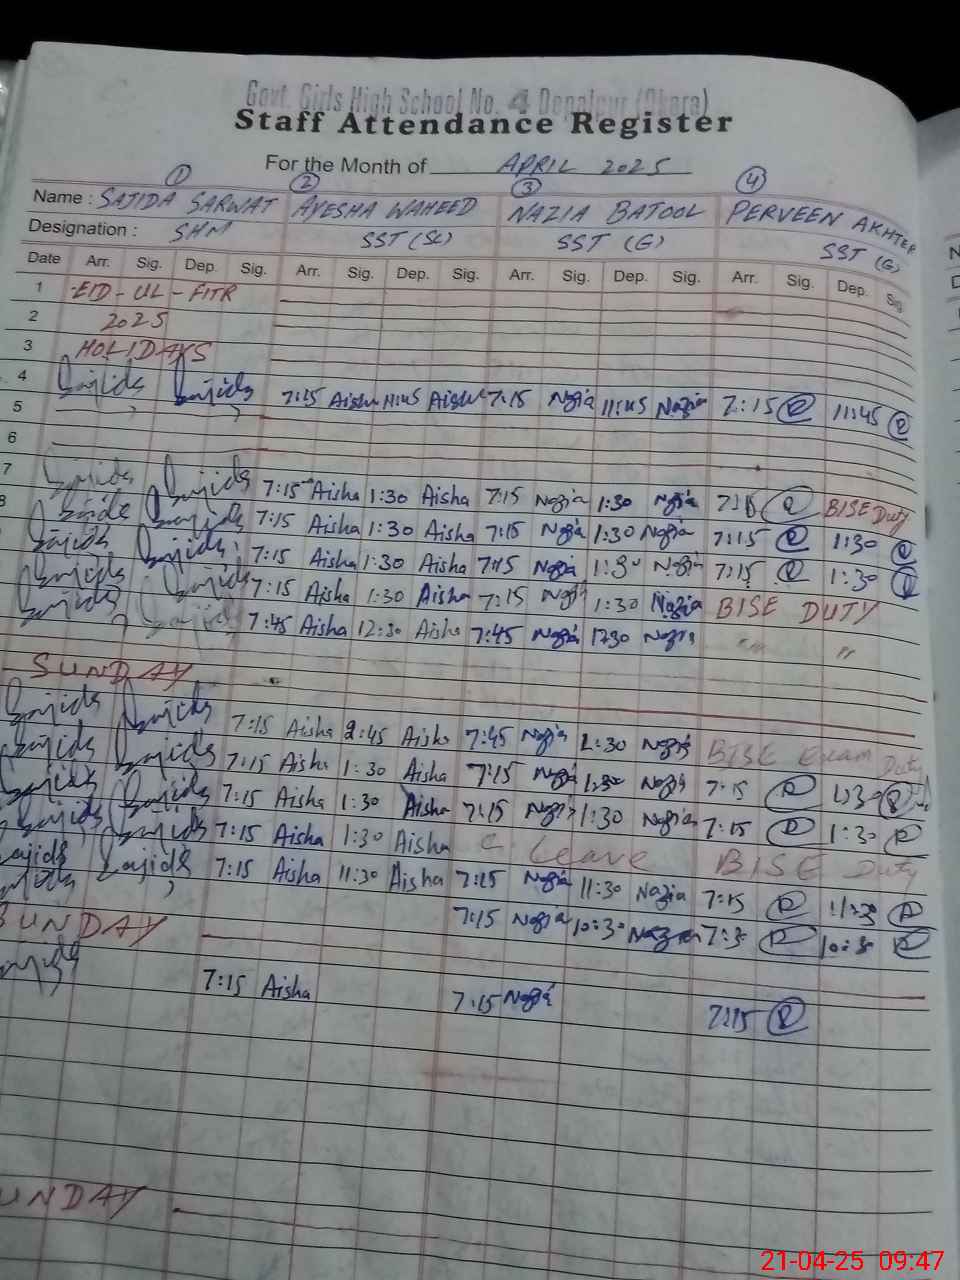 Govt. Girls High School No. 4 Depalpur (Okara)
Staff Attendance Register
For the Month of APRIL 2025
1 2 3 4
Name : SAJIDA SARWAT AYESHA WAHEED NAZIA BATOOL PERVEEN AKHTER
Designation : SHM SST (SC) SST (G) SST (G)
Date Arr. Sig. Dep. Sig. Arr. Sig. Dep. Sig. Arr. Sig. Dep. Sig. Arr. Sig. Dep. Sig.
1 EID - UL - FITR
2 2025
3 HOLIDAYS
4 Sajida Sajida 7:15 Aisha 11:45 Aisha 7:15 Nazia 11:45 Nazia 7:15 11:45
5
6
7 Sajida Sajida 7:15 Aisha 1:30 Aisha 7:15 Nazia 1:30 Nazia 7:15 BISE Duty
8 Sajida Sajida 7:15 Aisha 1:30 Aisha 7:15 Nazia 1:30 Nazia 7:15 1:30
Sajida Sajida 7:15 Aisha 1:30 Aisha 7:15 Nazia 1:30 Nazia 7:15 1:30
Sajida Sajida 7:15 Aisha 1:30 Aisha 7:15 Nazia 1:30 Nazia BISE DUTY
Sajida Sajida 7:45 Aisha 12:30 Aisha 7:45 Nazia 1230 Nazia " "
SUNDAY
Sajida Sajida 7:15 Aisha 2:45 Aisha 7:45 Nazia 1:30 Nazia BISE Exam Duty
Sajida Sajida 7:15 Aisha 1:30 Aisha 7:15 Nazia 1:30 Nazia 7:15 1:30
Sajida Sajida 7:15 Aisha 1:30 Aisha 7:15 Nazia 1:30 Nazia 7:15 1:30
Sajida Sajida 7:15 Aisha 1:30 Aisha C. Leave BISE Duty
Sajida Sajida 7:15 Aisha 11:30 Aisha 7:15 Nazia 11:30 Nazia 7:15 11:30
7:15 Nazia 10:30 Nazia 7:3 10:3
SUNDAY
7:15 Aisha 7:15 Nazia 7:15
UNDAY
21-04-25 09:47